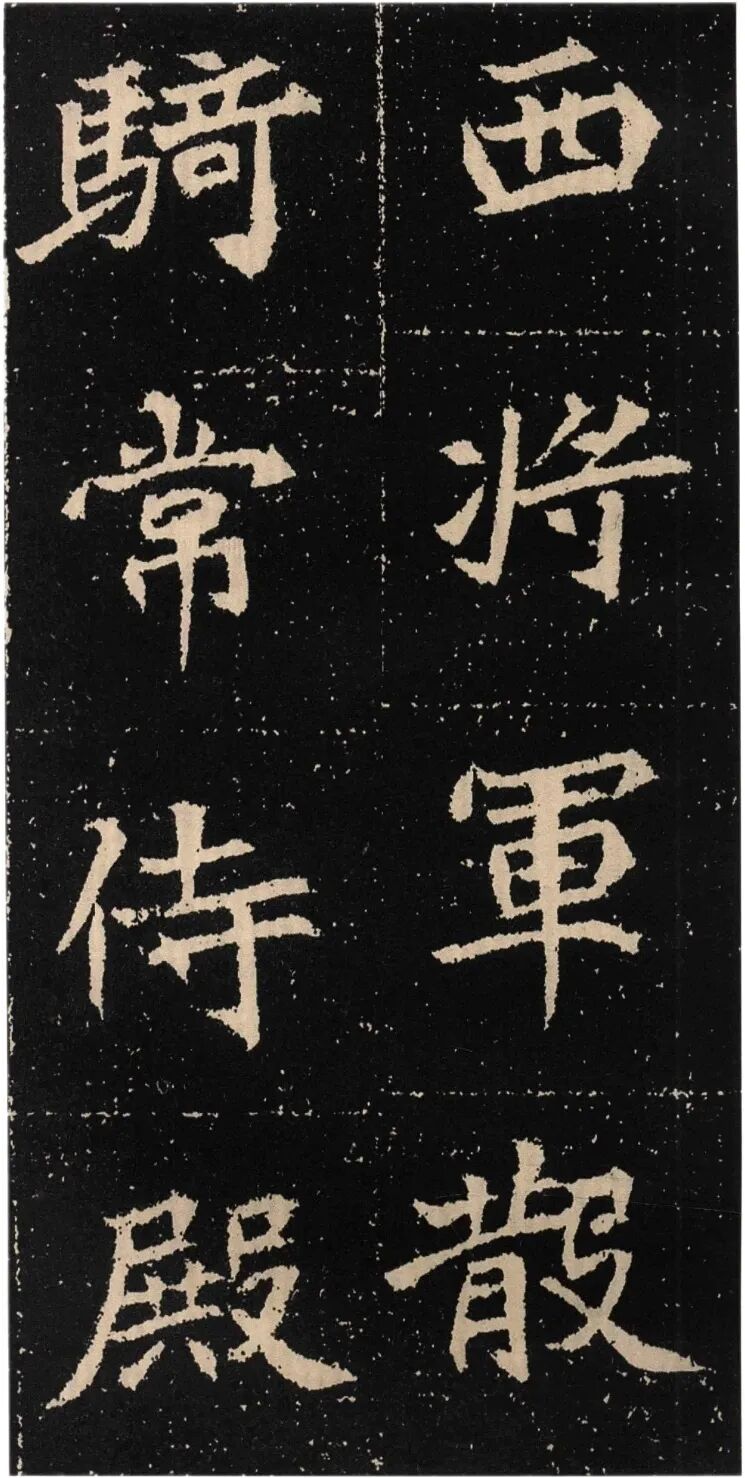 西将軍散
騎常侍殿